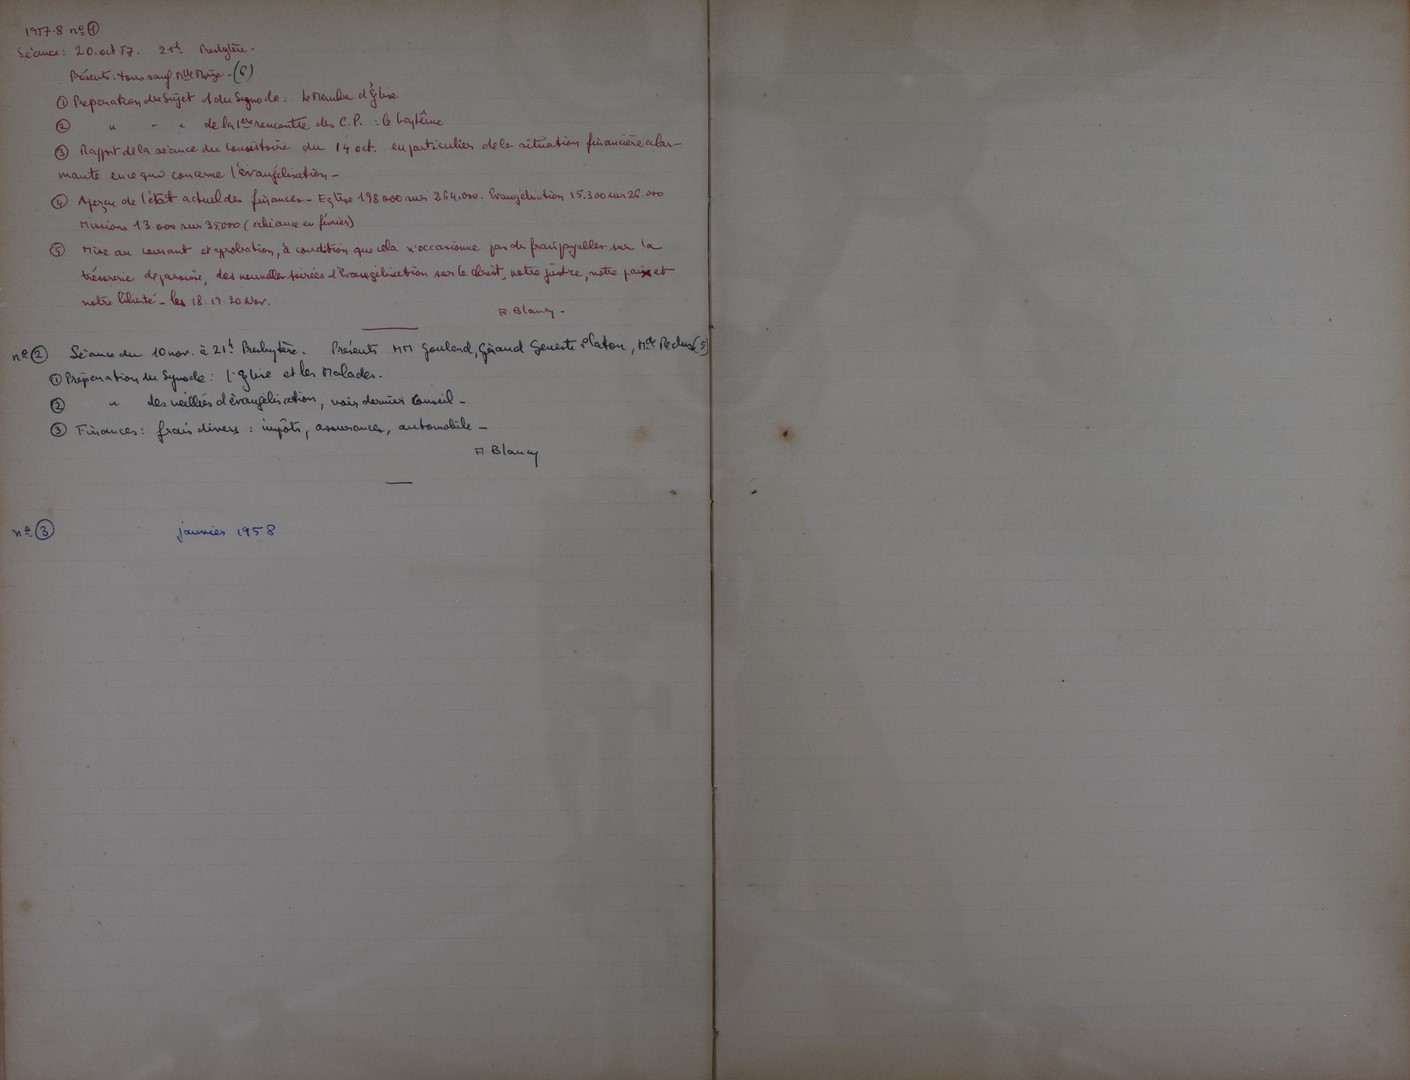 1957-8 nº ①
Séance: 20. oct 57. 21h Presbytère -
Présents: tous sauf Mlle - (6)
① Préparation du Sujet 1 du Synode: le Membre d'Église
② " - " de la 1ère rencontre des C.P. : le baptême
③ Rapport de la séance du Consistoire du 14 oct. en particulier de la situation financière alar-
mante en ce qui concerne l'évangélisation -
④ Aperçu de l'état actuel des finances - Eglise 198 000 sur 264.000. Evangélisation 15.300 sur 26.000
Missions 13.000 sur 35000 (échéance en février)
⑤ Mise au courant et approbation, à condition que cela n'occasionne pas de frais payables sur la
trésorerie de paroisse, des nouvelles soirées d'Evangélisation sur le Christ, notre justice, notre paix et
notre liberté - les 18. 19. 20 Nov.
A. Blancy -
nº ② Séance du 10 nov. à 21h Presbytère. Présents MM Goulard, Géraud Geneste Platon, (5)
① Préparation du Synode: l'Eglise et les Malades.
② " des veillées d'évangélisation, voir dernier Conseil -
③ Finances: frais divers : impôts, assurances, automobile -
A Blancy
nº ③ janvier 1958